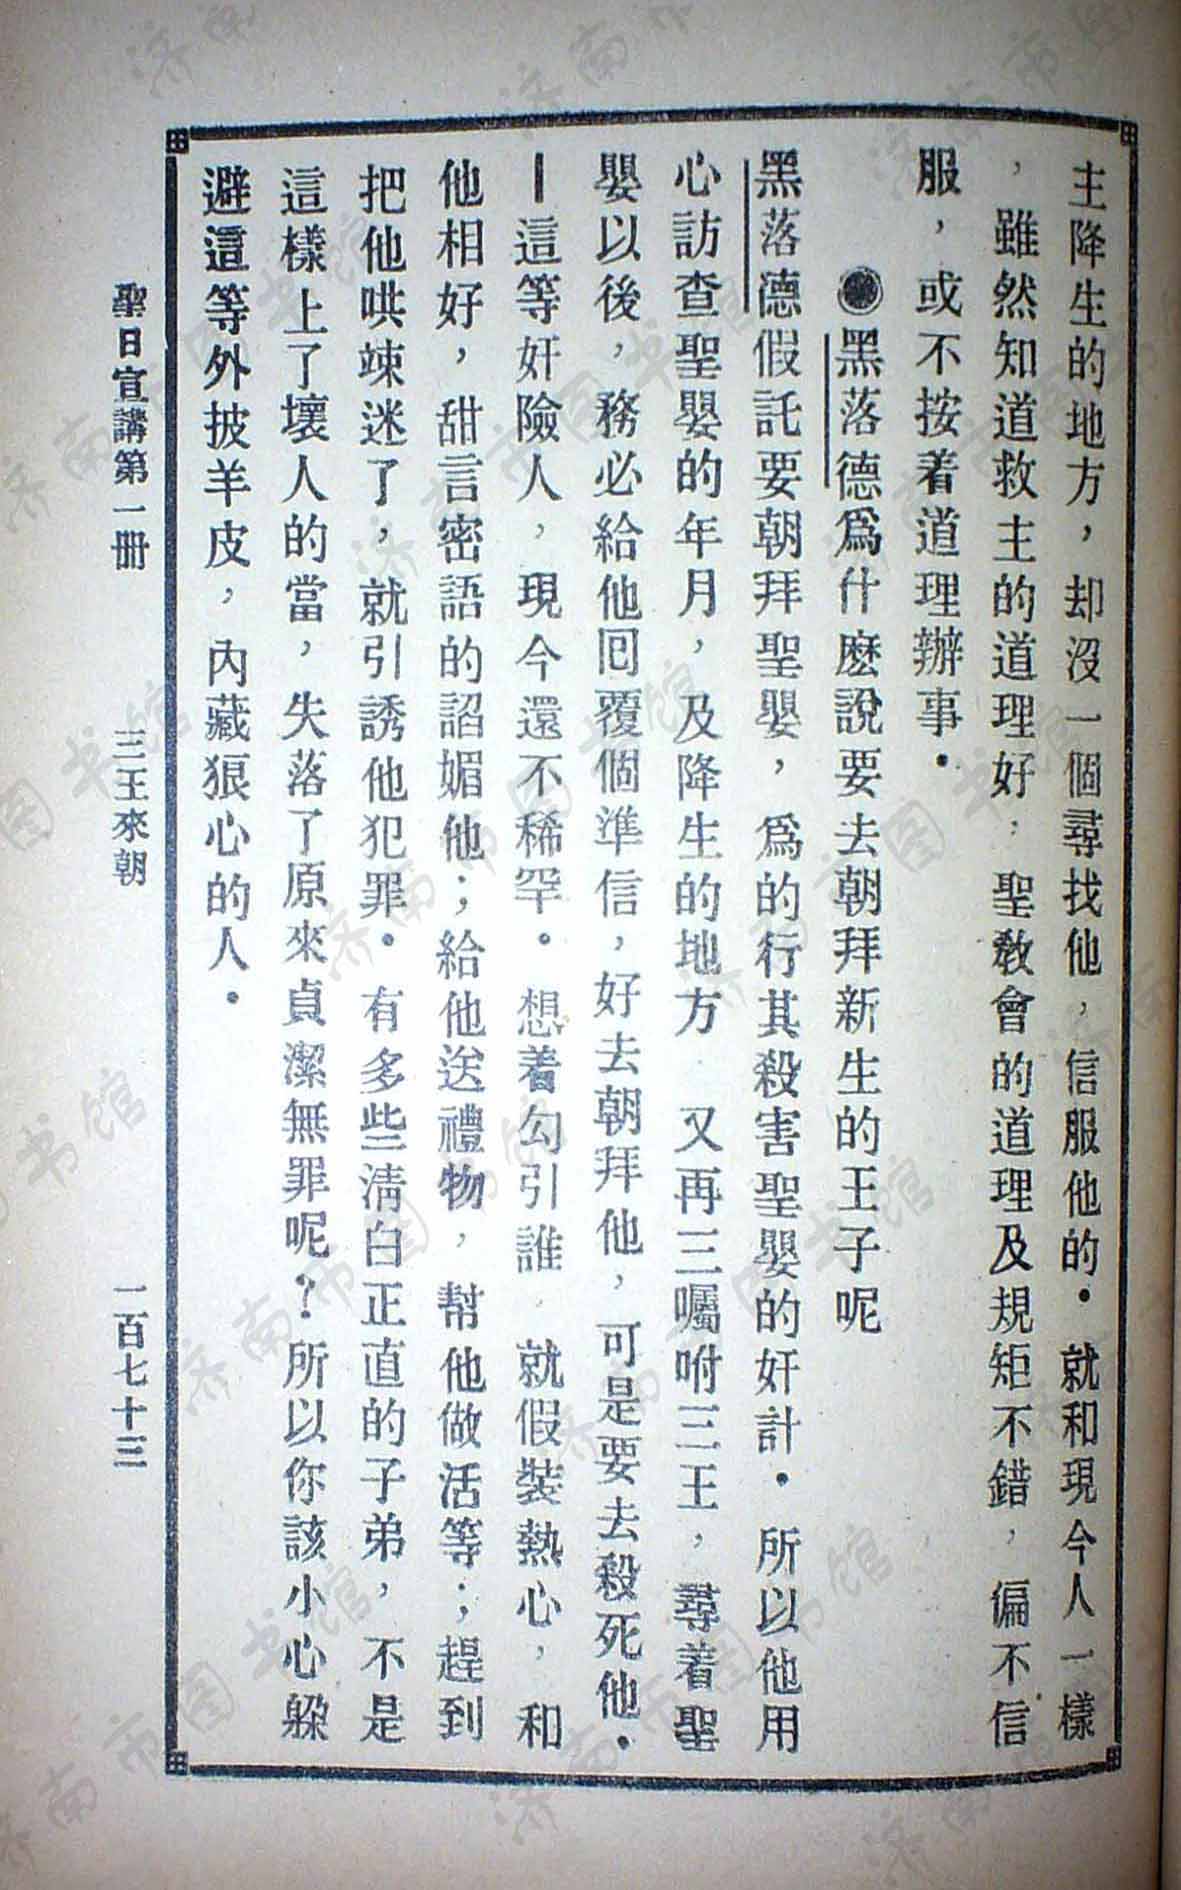 主降生的地方，却沒一個尋找他，信服他的．就和現今人一樣
，雖然知道救主的道理好，聖敎會的道理及規矩不錯，偏不信
服，或不按着道理辦事．
◉黑落德爲什麽說要去朝拜新生的王子呢
黑落德假託要朝拜聖嬰，爲的行其殺害聖嬰的奸計．所以他用
心訪查聖嬰的年月，及降生的地方 又再三囑咐三王，尋着聖
嬰以後，務必給他回覆個準信，好去朝拜他，可是要去殺死他．
—這等奸險人，現今還不稀罕．想着勾引誰，就假裝熱心，和
他相好，甜言密語的諂媚他；給他送禮物，幫他做活等；趕到
把他哄竦迷了，就引誘他犯罪．有多些淸白正直的子弟，不是
這樣上了壞人的當，失落了原來貞潔無罪呢？所以你該小心躱
避這等外披羊皮，內藏狼心的人．
聖日宣講第一册 三王來朝 一百七十三
济南市图书馆